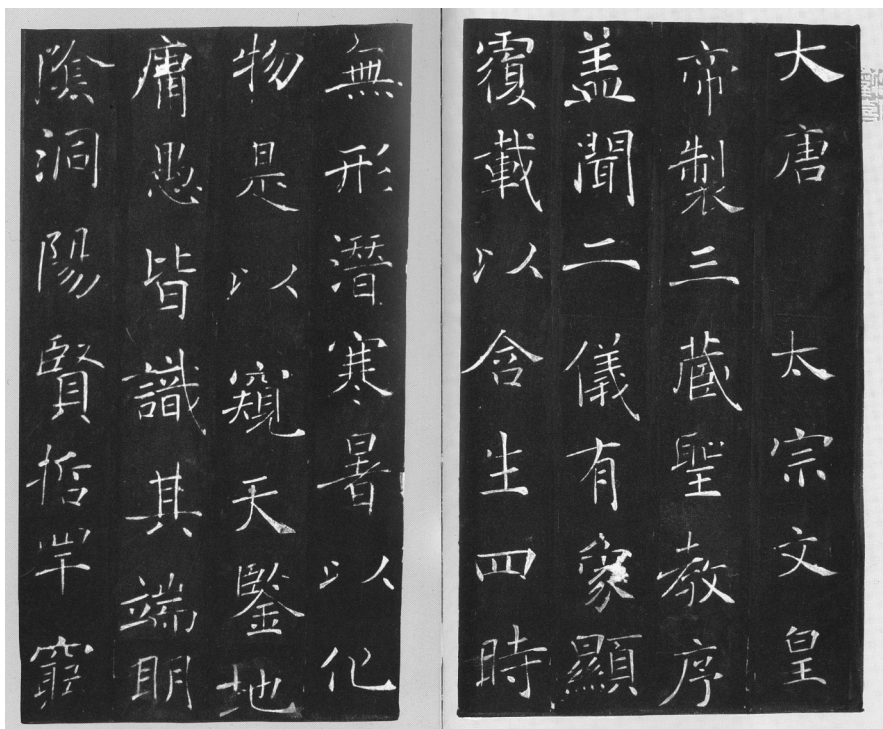 大唐太宗文皇
帝製三藏聖教序
盖聞二儀有象顯
覆載以含生四時
無形潛寒暑以化
物是以窺天鑒地
庸愚皆識其端明
陰洞陽賢哲罕窮